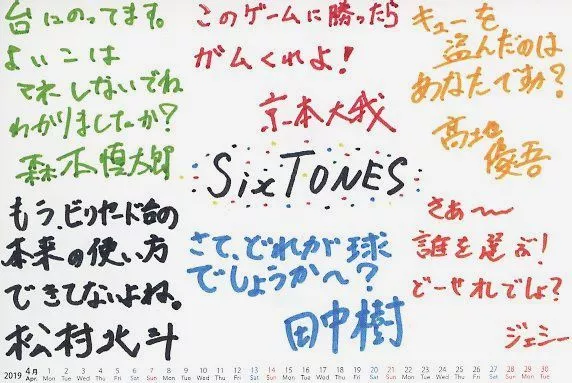 台にのってます。
よいこは
マネしないでね
わかりましたか?
森本慎太郎
このゲームに勝ったら
ガムくれよ!
京本大我
キューを
盗んだのは
あなたですか?
髙地
優吾
SixTONES
もう、ビリヤード台の
本来の使い方
できてないよね。
松村北斗
さて、どれが球
でしょうかへ?
田中樹
さぁ〜
誰を選ぶ!
どーせオレでしょ?
ジェシー
2019 4月 1 2 3 4 5 6 7 8 9 10 11 12 13 14 15 16 17 18 19 20 21 22 23 24 25 26 27 28 29 30
Apr. Mon Tue Wed Thu Fri Sat Sun Mon Tue Wed Thu Fri Sat Sun Mon Tue Wed Thu Fri Sat Sun Mon Tue Wed Thu Fri Sat Sun Mon Tue